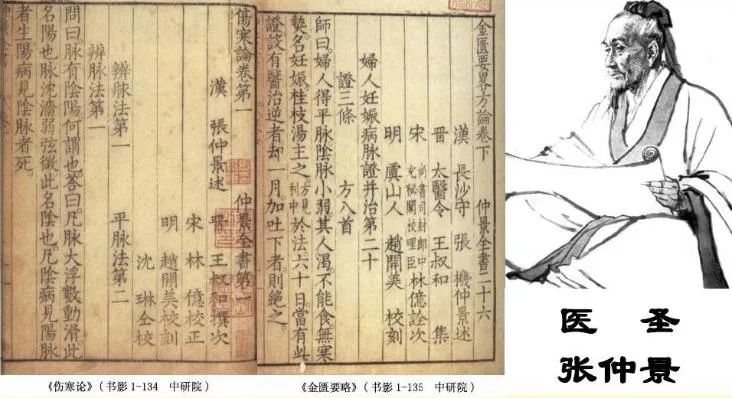 傷寒論卷第一 仲景全書第一
漢 張仲景述
晉 王叔和撰次
宋 林億校正
明 趙開美校刻
沈琳仝校
辨脉法第一 平脉法第二
辨脉法第一
問曰。脉有陰陽何謂也。荅曰。凡脉大浮數動滑此
名陽也。脉沈濇弱弦微此名陰也。凡陰病見陽脉
者生。陽病見陰脉者死。
《伤寒论》（书影1-134 中研院）
金匱要畧方論卷下 仲景全書二十六
漢 長沙守 張 機仲景述
晉 太醫令 王叔和 集
宋 尚書司封郎中充秘閣校理臣 林億詮次
明 虞山人 趙開美 校刻
婦人妊娠病脉證并治第二十
證三條 方八首
師曰。婦人得平脉。陰脉小弱。其人渴。不能食。無寒
熱。名妊娠。桂枝湯主之。方見利中 於法六十日當有此
證。設有醫治逆者。却一月加吐下者。則絶之。
《金匮要略》（书影1-135 中研院）
医 圣
张仲景